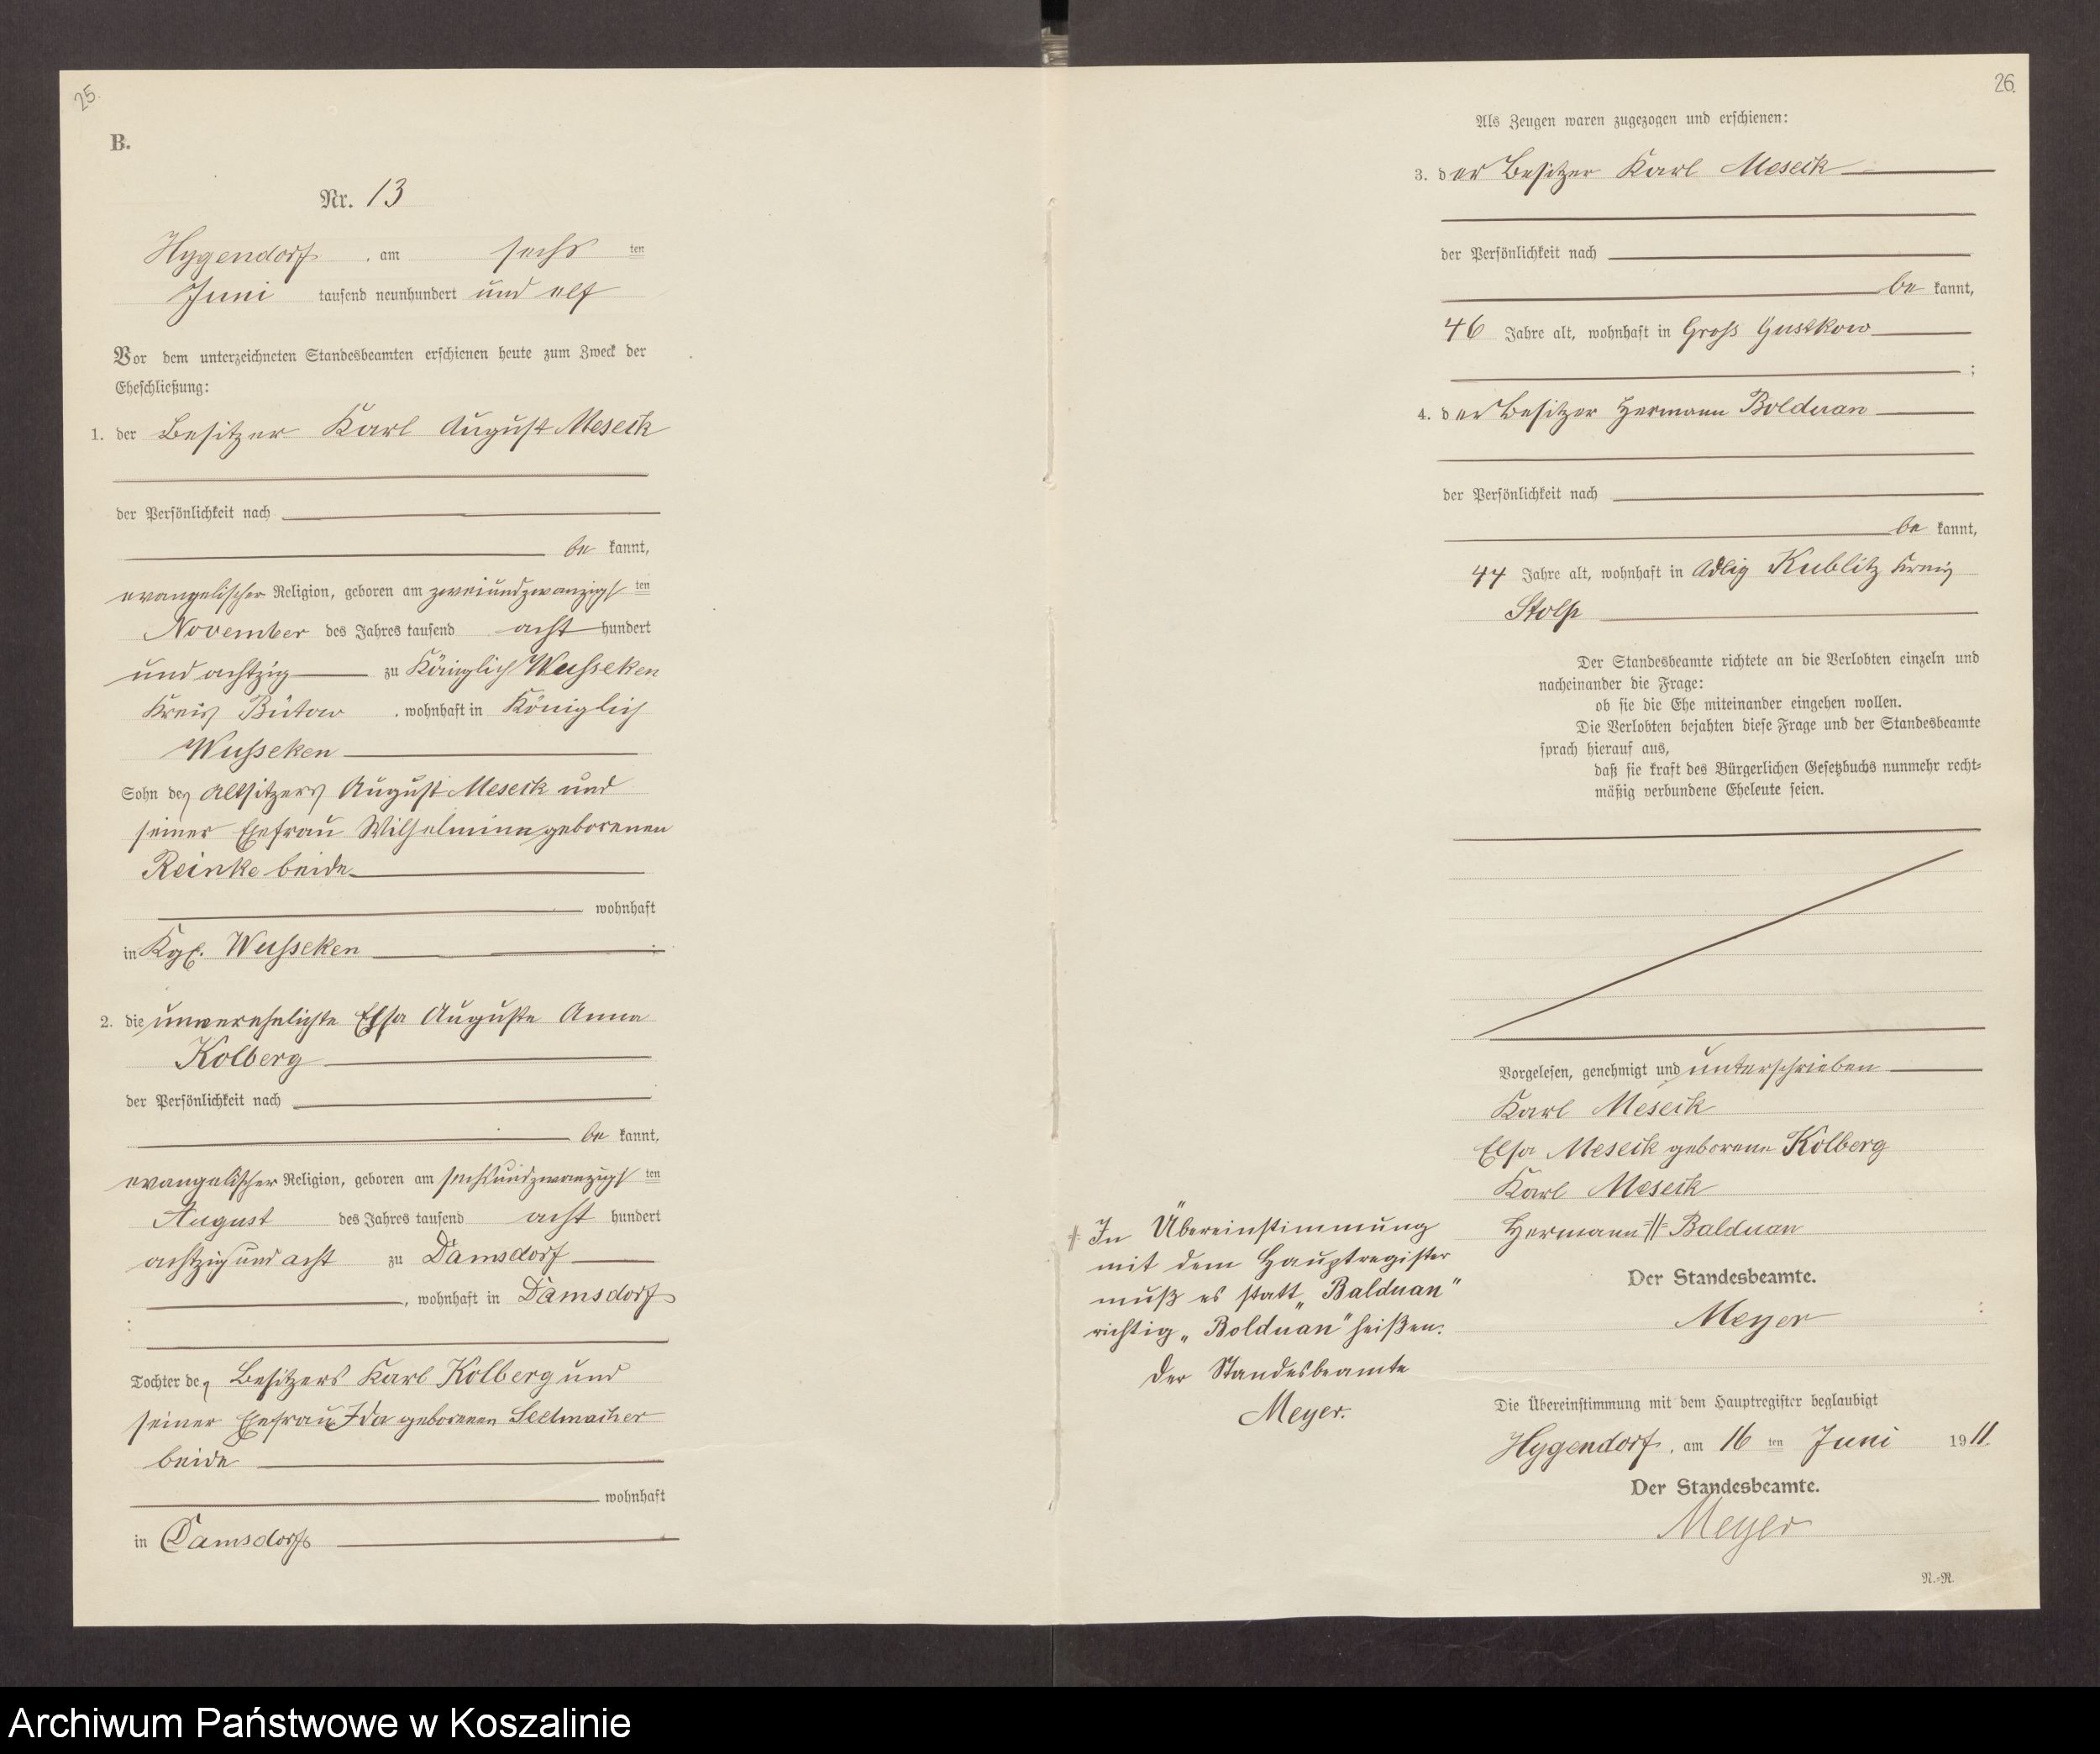 25.
B.
Nr. 13
Hygendorf, am sechs ten
Juni tausend neunhundert und elf
Vor dem unterzeichneten Standesbeamten erschienen heute zum Zweck der
Eheschließung:
1. der Besitzer Karl August Meseck
der Persönlichkeit nach
be kannt,
evangelischer Religion, geboren am zweiundzwanzigsten
November des Jahres tausend acht hundert
und achtzig zu Königlich Wusseken
Kreis Bütow, wohnhaft in Königlich
Wusseken
Sohn des Altsitzers August Meseck und
seiner Ehefrau Wilhelmine geborenen
Reinke beide
wohnhaft
in Kgl. Wusseken ;
2. die unverehelichte Elsa Auguste Anna
Kolberg
der Persönlichkeit nach
be kannt,
evangelischer Religion, geboren am sechsundzwanzigsten
August des Jahres tausend acht hundert
achtzig und acht zu Damsdorf
, wohnhaft in Damsdorf
Tochter des Besitzers Karl Kolberg und
seiner Ehefrau Ida geborenen Sellmacher
beide
wohnhaft
in Damsdorf
26.
Als Zeugen waren zugezogen und erschienen:
3. der Besitzer Karl Meseck
der Persönlichkeit nach
be kannt,
46 Jahre alt, wohnhaft in Gross Gustkow
;
4. der Besitzer Hermann Bolduan
der Persönlichkeit nach
be kannt,
44 Jahre alt, wohnhaft in Adlig Kublitz Kreis
Stolp
Der Standesbeamte richtete an die Verlobten einzeln und
nacheinander die Frage:
ob sie die Ehe miteinander eingehen wollen.
Die Verlobten bejahten diese Frage und der Standesbeamte
sprach hierauf aus,
daß sie kraft des Bürgerlichen Gesetzbuchs nunmehr recht-
mäßig verbundene Eheleute seien.
Vorgelesen, genehmigt und unterschrieben
Karl Meseck
Elsa Meseck geborene Kolberg
Karl Meseck
Hermann Balduan
Der Standesbeamte.
Meyer
In Übereinstimmung
mit dem Hauptregister
muß es statt „Balduan"
richtig „Bolduan" heißen.
Der Standesbeamte
Meyer.
Die Übereinstimmung mit dem Hauptregister beglaubigt
Hygendorf, am 16 ten Juni 1911.
Der Standesbeamte.
Meyer
N.-R.
Archiwum Państwowe w Koszalinie